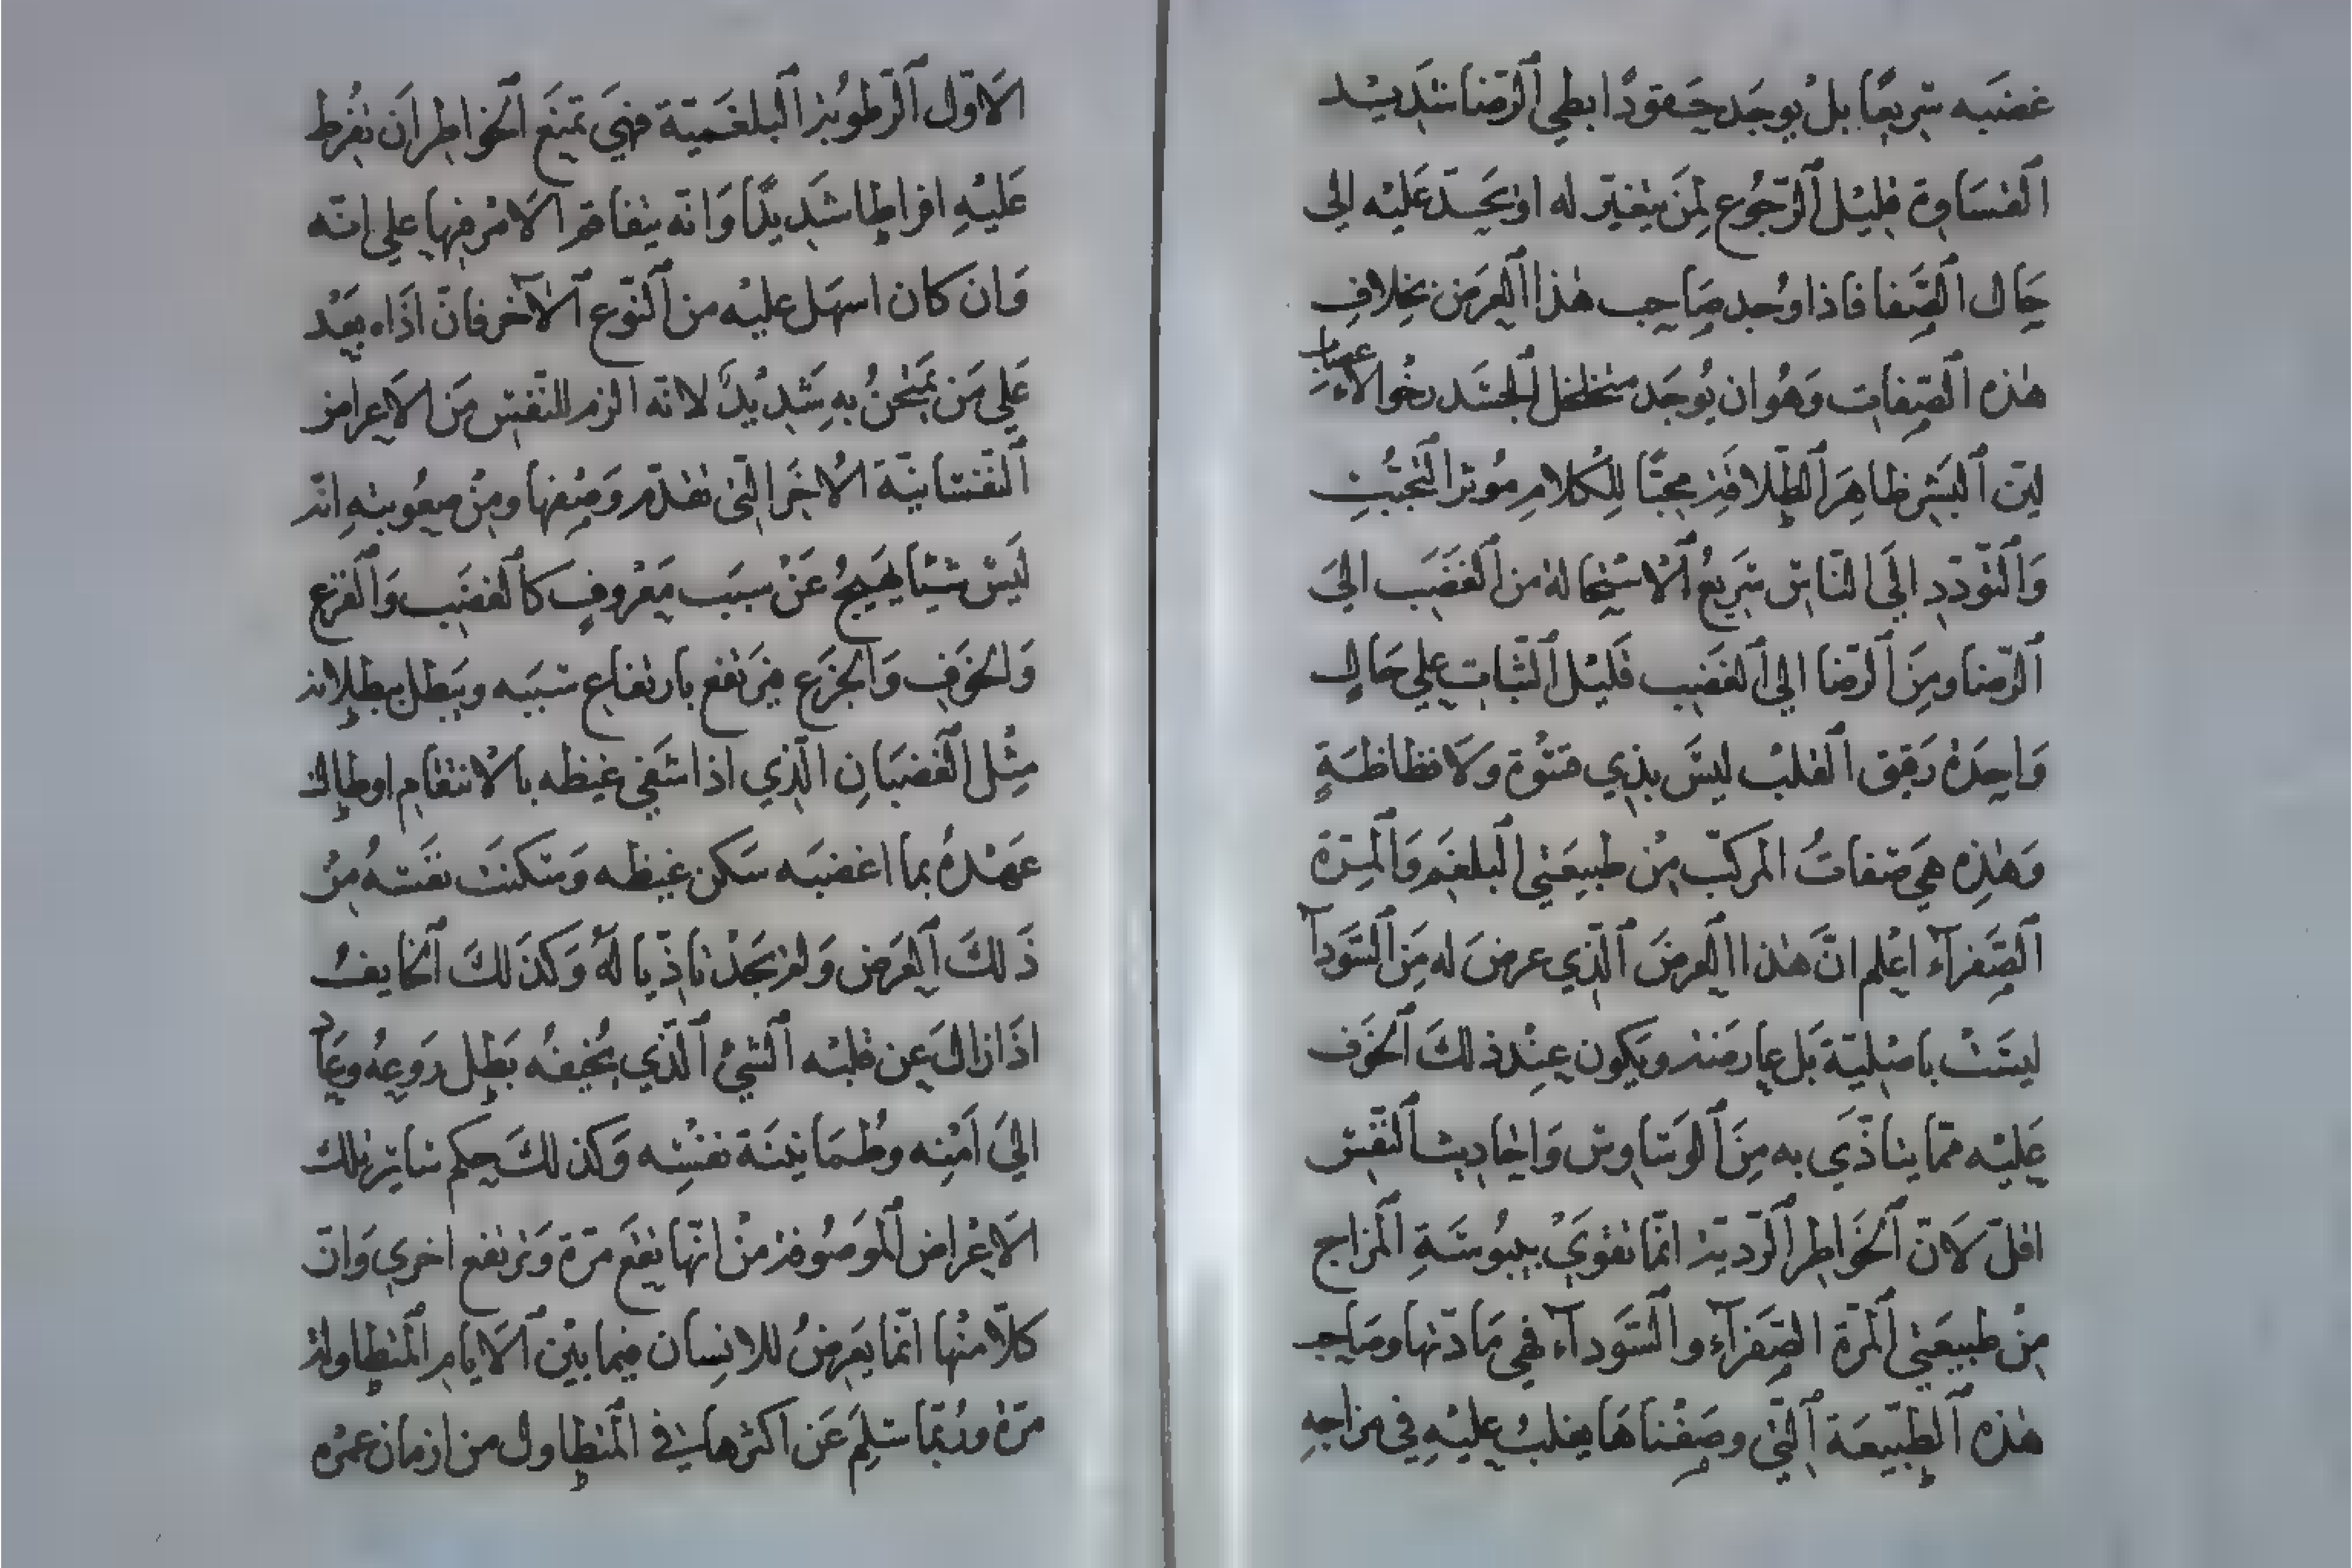 غضبه سريعًا بل يوجد حقودًا بطي الرضا شديد
القساوة قليل الرجوع لمن يتغير له او يحتد عليه الى
حال الصفا فاذا وجد صاحب هذا العرض بخلاف
هذه الصفات وهو ان يوجد متخلخل الجسد رخو الاعصاب
لين البشر ظاهر الطلاقة محبًا للكلام موثرا لتحبب
والتودد الى الناس سريع الاستحاله من الغضب الى
الرضا ومن الرضا الى الغضب قليل الثبات على حال
واحدة رقيق القلب ليس بذي قسوة ولا فظاظة
وهذه هي صفات المركب من طبيعتي البلغم والمرة
الصفرآء اعلم ان هذا العرض الذي عرض له من السودآ
ليست باصلية بل عارضة ويكون عند ذلك الخوف
عليه مما يتاذى به من الوساوس واحاديث النفس
اقل لان الخواطر الردية انما تقوى بيبوسة المزاج
من طبيعتي المرة الصفرآء والسودآء فهي مادتها وصاحب
هذه الطبيعة التي وصفناها يغلب عليه في مزاجه
الاول الرطوبة البلغمية فهي تمنع الخواطر ان تفرط
عليه افراطا شديدًا وانه يتفاقم الامر فيها على انه
وان كان اسهل عليه من النوع الآخر فان اذاه بعد
على من يمتحن به شديدٌ لانه الزم للنفس من الاعراض
النفسانية الاخر التي تقدم وصفها ومن صعوبته انه
ليس شيئا يهيج عن سبب معروف كالغضب والفزع
والخوف والجزع فيرتفع بارتفاع سببه ويبطل ببطلانه
مثل الغضبان الذي اذا شفى غيظه بالانتقام او طال
عهده بما اغضبه سكن غيظه وسكنت نفسه من
ذلك العرض ولم يجد تاذيا له وكذلك الخايف
اذا زال عن قلبه الشئ الذي يخيفه بطل روعه وعاد
الى امنه وطمانينة نفسه وكذلك حكم ساير تلك
الاعراض الموصوفة من انها تقع مرة وترتفع اخرى وان
كلًا منها انما يعرض للانسان فيما بين الايام المتطاولة
مرة وربما سلم عن اكثرها في المتطاول من ازمان عمره